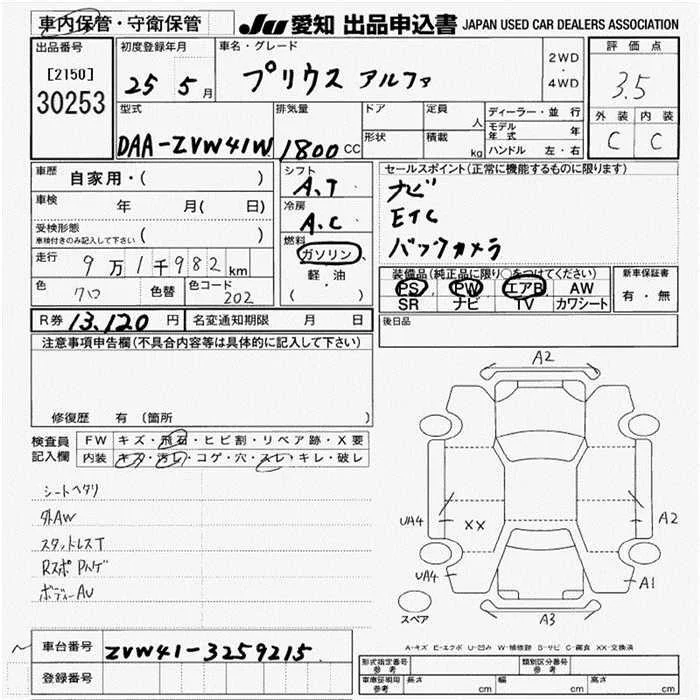 車内保管・守衛保管
JU 愛知 出品申込書 JAPAN USED CAR DEALERS ASSOCIATION
出品番号
[2150]
30253
初度登録年月
25 5月
車名・グレード
プリウス アルファ
2WD
・
4WD
評価点
3.5
外装 内装
C C
型式
DAA-ZVW41W
排気量
1800cc
ドア
形状
定員 人
積載 kg
ディーラー・並行
モデル年式 年
ハンドル 左・右
車歴 自家用・( )
車検 年 月( 日)
受検形態
車検付きのみ記入して下さい ( )
走行 9万1千982km
色 クロ 色替 色コード 202
シフト
A.T
冷房
A.C
燃料
ガソリン、
軽・油
( )
セールスポイント(正常に機能するものに限ります)
ナビ
ETC
バックカメラ
装備品(純正品に限り○をつけてください)
PS PW エアB AW
SR ナビ TV カワシート
新車保証書
有・無
R券 13,120円 名変通知期限 月 日
後日品
注意事項申告欄(不具合内容等は具体的に記入して下さい)
修復歴 有 (箇所 )
検査員記入欄
FW キズ・飛石・ヒビ割・リペア跡・X要
内装 キズ・汚レ・コゲ・穴・スレ・キレ・破レ
シートヘタリ
外AW
スタットレスT
Rスポ Pハゲ
ボディーAU
A2
UA4
XX
A2
UA4
A1
A3
スペア
A-キズ E-エクボ U-凹み W-補修跡 S-サビ C-腐食 XX-交換済
車台番号 ZVW41-3259215
登録番号
形式指定番号 参考
類別区分番号 参考
車庫証明用 参考 長さ cm 幅 cm 高さ cm